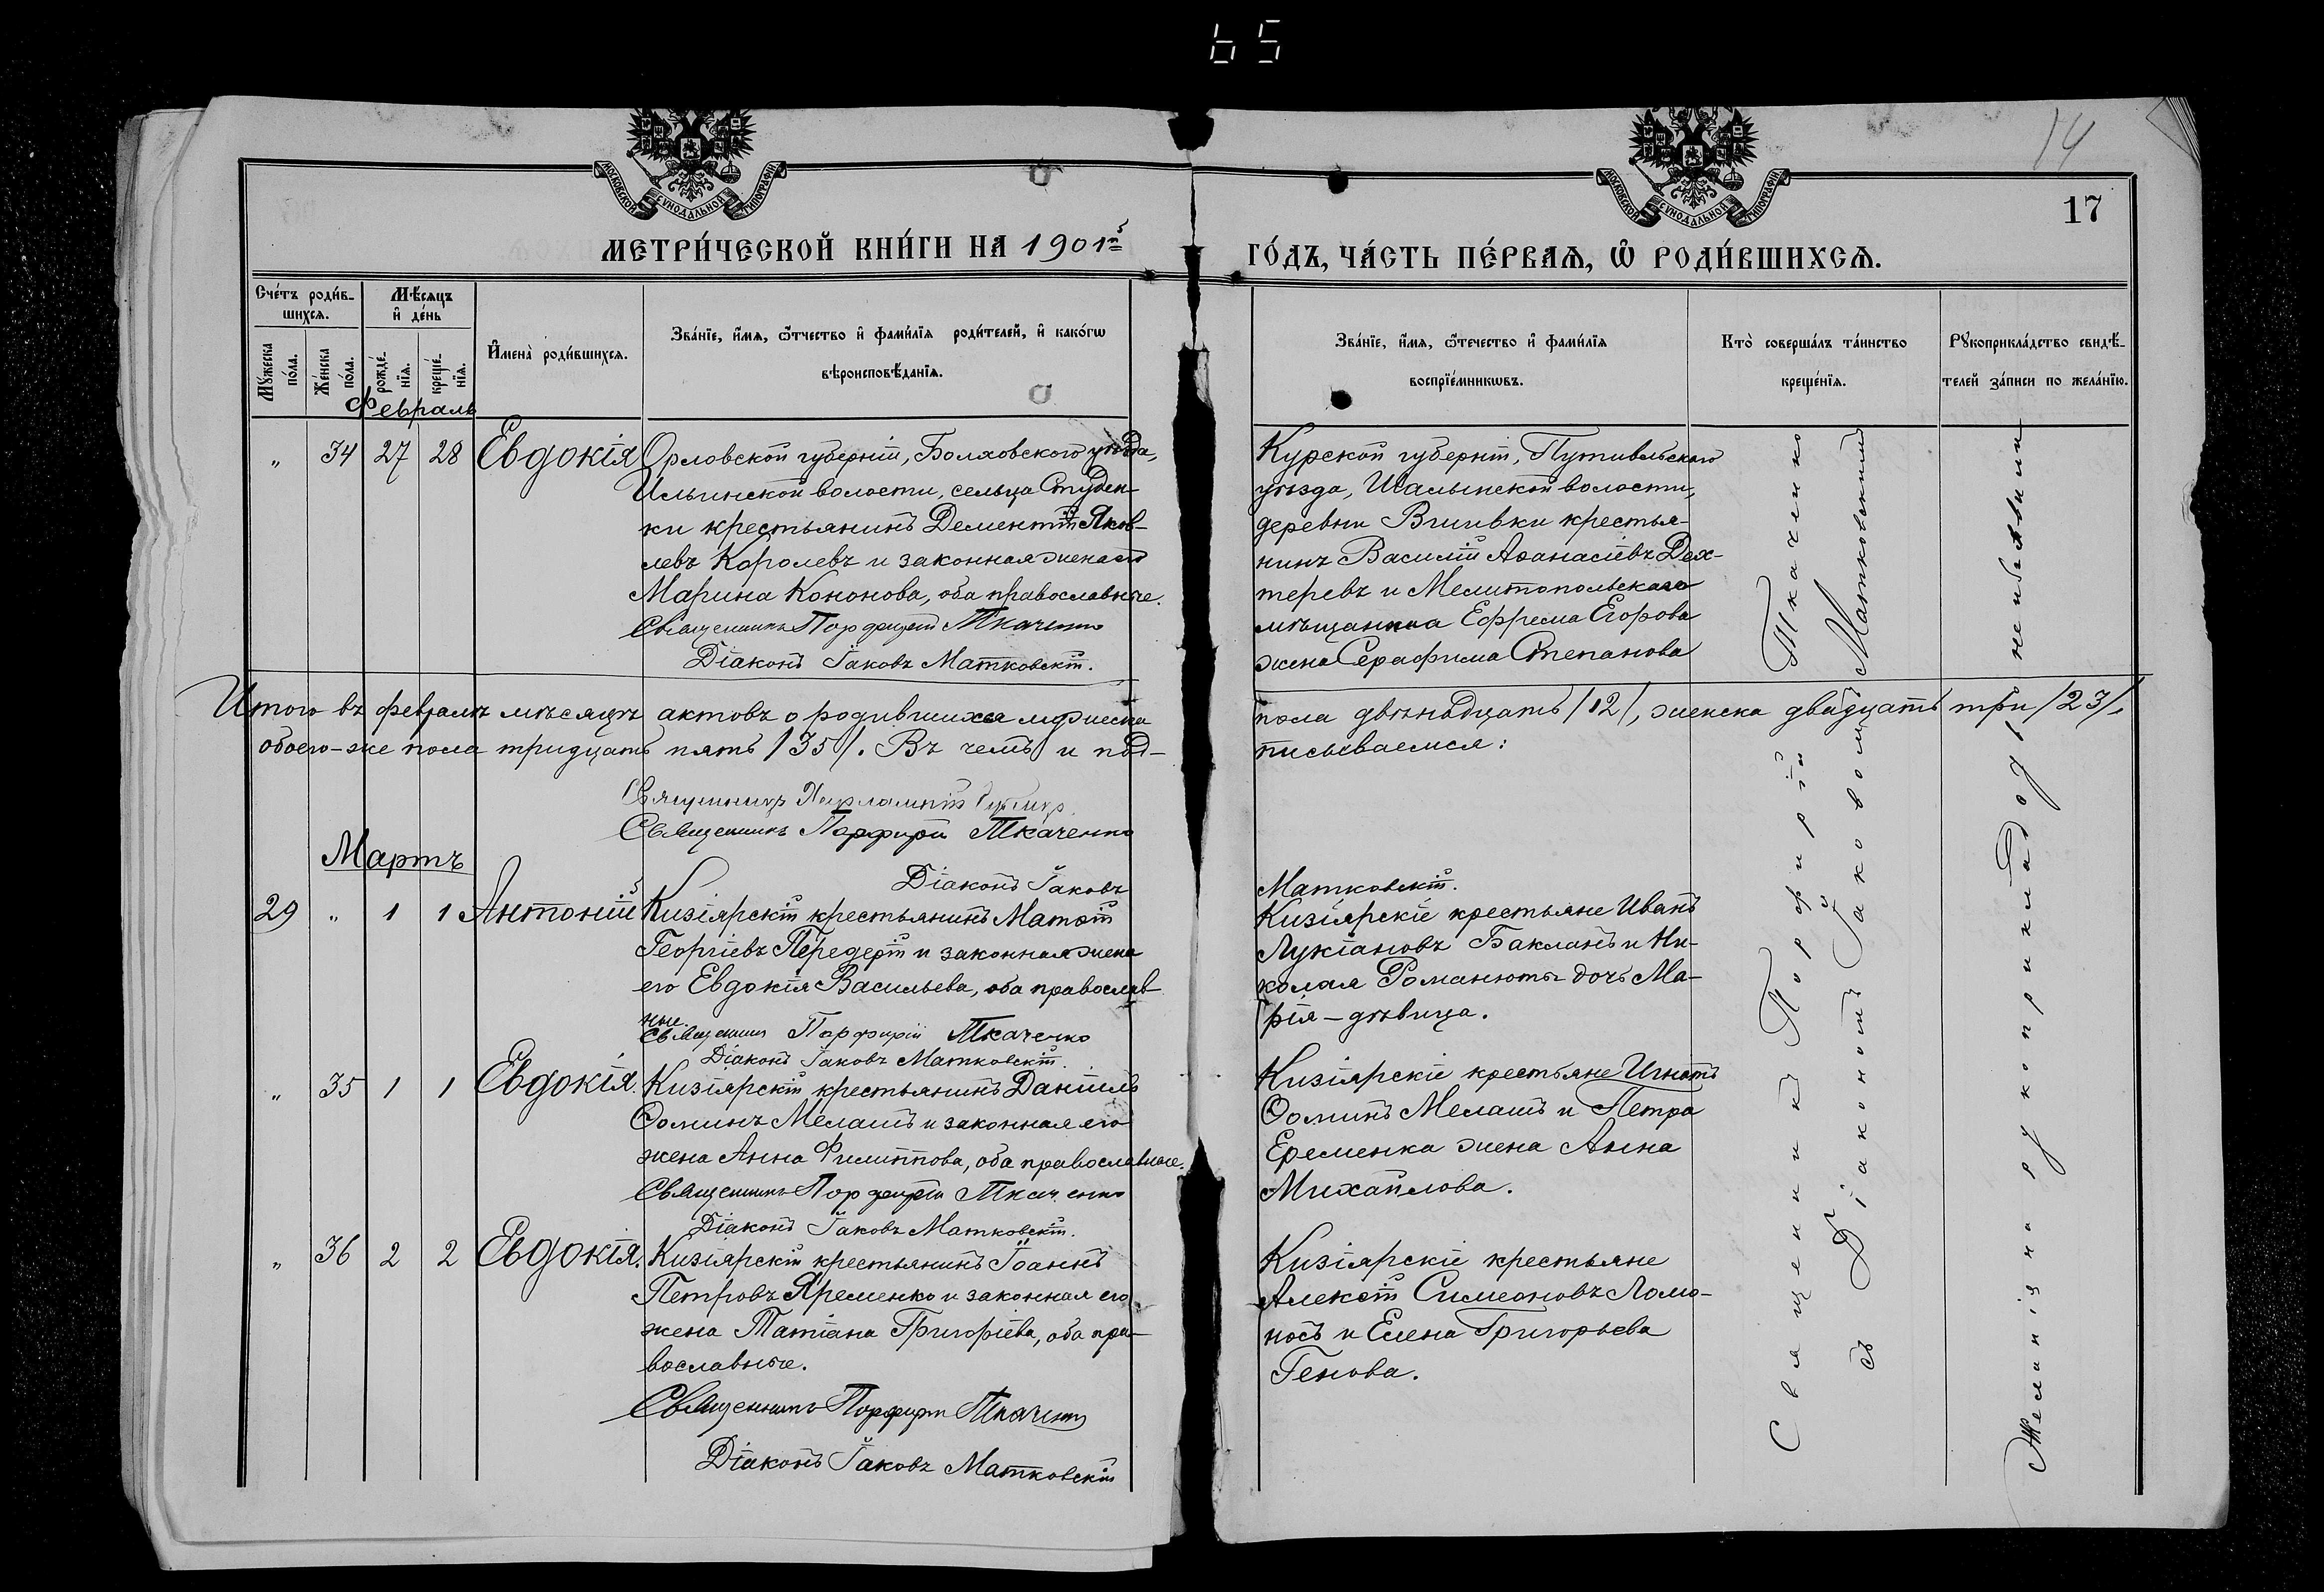 65
14
МОСКОВСКОЙ СѴНОДАЛЬНОЙ ТИПОГРАФІИ
МОСКОВСКОЙ СѴНОДАЛЬНОЙ ТИПОГРАФІИ
17
МЕТРИ́ЧЕСКОЙ КНИ́ГИ НА 1901й
ГО́ДЪ, ЧА́СТЬ ПЕ́РВАѦ, Ѡ҆ РОДИ́ВШИХСѦ.
Сче́тъ роди́в-
шихсѧ.
Мꙋ́жеска по́ла.
Же́нска по́ла.
Мѣ́сѧцъ
и҆ де́нь
рожде́-нїѧ.
креще́-нїѧ.
И҆мена̀ роди́вшихсѧ.
Зва́нїе, и҆́мѧ, ѻ҆́тчество и҆ фами́лїѧ роди́телей, и҆ како́гѡ
вѣроисповѣ́данїѧ.
Зва́нїе, и҆́мѧ, ѻ҆те́чество и҆ фами́лїѧ
воспрїе́мникѡвъ.
Кто̀ соверша́лъ та́инство
креще́нїѧ.
Рꙋкоприкла́дство свидѣ́-
телей за́писи по жела́нїю.
Февраль
" 34 27 28 Евдокія
Орловской губерніи, Болховского уѣзда,
Ильинской волости, сельца Студен-
ки крестьянинъ Дементій Яков-
левъ Королевъ и законная жена его
Марина Кононова, оба православные.
Священникъ Порфирій Ткаченко
Діаконъ Іаковъ Матковскій.
Курской губерніи, Путивльского
уѣзда, волости,
деревни крестья-
нинъ Василій Аѳанасіевъ Дех-
теревъ и Мелитопольскаго
мѣщанина Ефрема Егорова
жена Серафима Степанова
Итого въ февралѣ мѣсяцѣ актовъ о родившихся мужеска
пола двѣнадцать /12/, женска двадцать три /23/,
обоего-же пола тридцать пять /35/. Въ чемъ и под-
писываемся:
Священникъ Харлампій
Священникъ Порфирій Ткаченко
Мартъ
Діаконъ Іаковъ
Матковскій.
29 " 1 1 Антоній
Кизіярскій крестьянинъ Матѳій
Георгіевъ Передерій и законная жена
его Евдокія Васильева, оба православ-
ные.
Священникъ Порфирій Ткаченко
Діаконъ Іаковъ Матковскій.
Кизіярскіе крестьяне Иванъ
Лукіановъ Бакланъ и Ни-
колая Романюты дочь Ма-
рія - дѣвица.
" 35 1 1 Евдокія.
Кизіярскій крестьянинъ Даніилъ
Ѳоминъ Мелашъ и законная его
жена Анна Филиппова, оба православные.
Священникъ Порфирій Ткаченко
Діаконъ Іаковъ Матковскій.
Кизіярскіе крестьяне Игнатъ
Ѳоминъ Мелашъ и Петра
Еременка жена Анна
Михайлова.
" 36 2 2 Евдокія.
Кизіярскій крестьянинъ Іоаннъ
Петровъ Яременко и законная его
жена Татіана Григоріева, оба пра-
вославные.
Священникъ Порфирій Ткаченко
Діаконъ Іаковъ Матковскій
Кизіярскіе крестьяне
Алексій Симеоновъ Ломо-
носъ и Елена Григорьева
Генова.
Священникъ Порфирій Ткаченко
съ Діакономъ Іаковомъ Матковскимъ
Желанія на рукоприкладство не изъявили